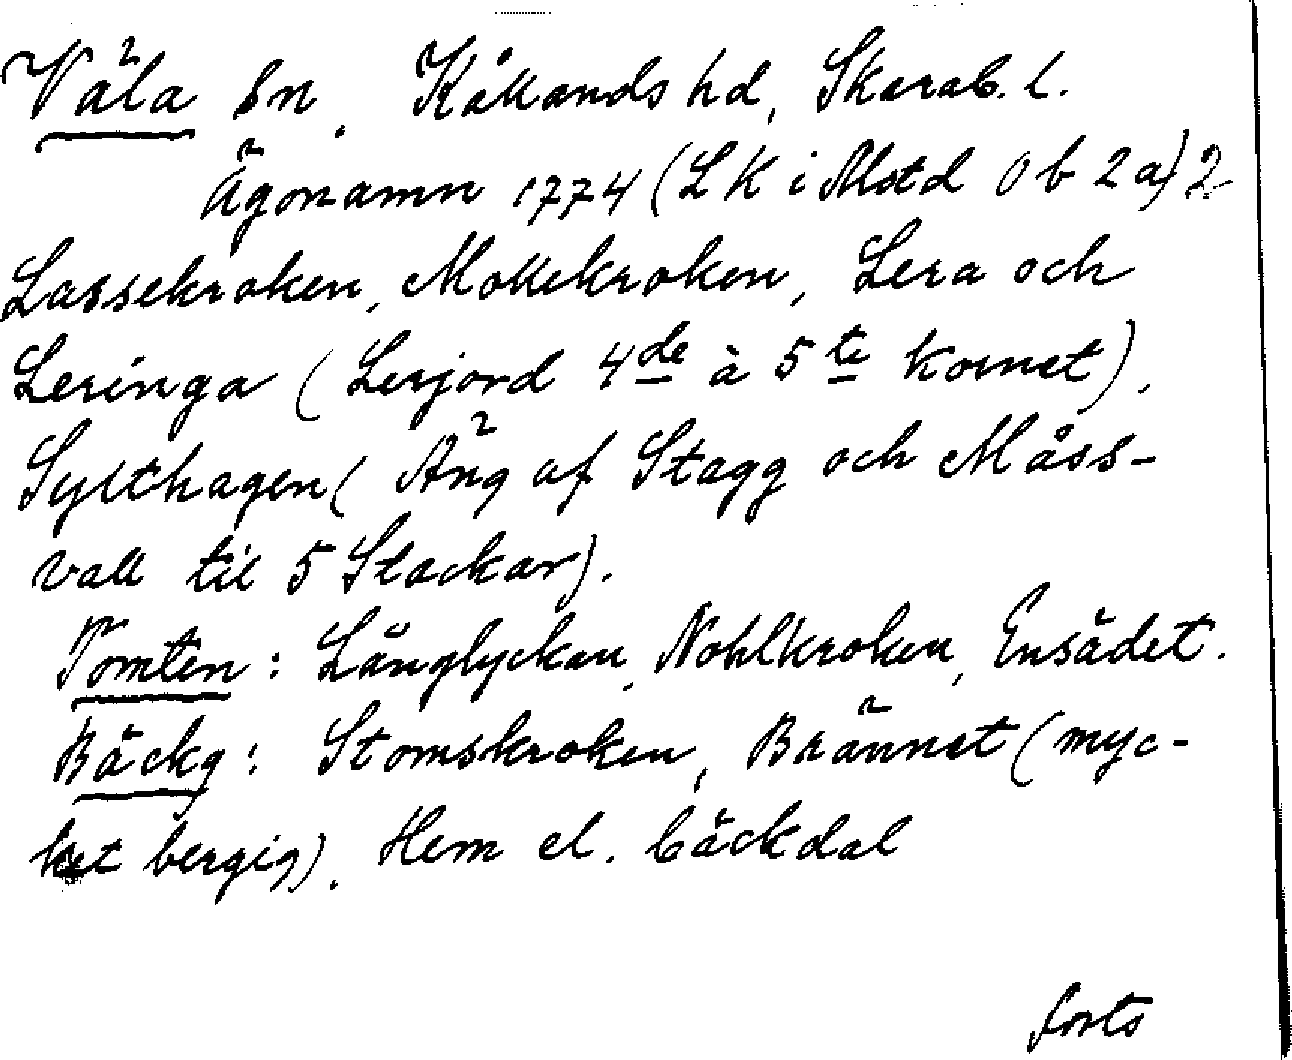 Väla sn. Kållands hd, Skarab. l.
Ägonamn 1774 (LK i Mstd O b 2a) 2
Lassekroken, Mollekroken, Lera och
Leringa (Lerjord 4de à 5te kornet),
Sylthagen (Äng af Stagg och Måss-
vall til 5 Stackar).
Tomten: Långlyckan, Nohlkroken, Ensädet.
Bäckg: Stomskroken, Brännet (myc-
ket bergig). Hem el. bäckdal
forts